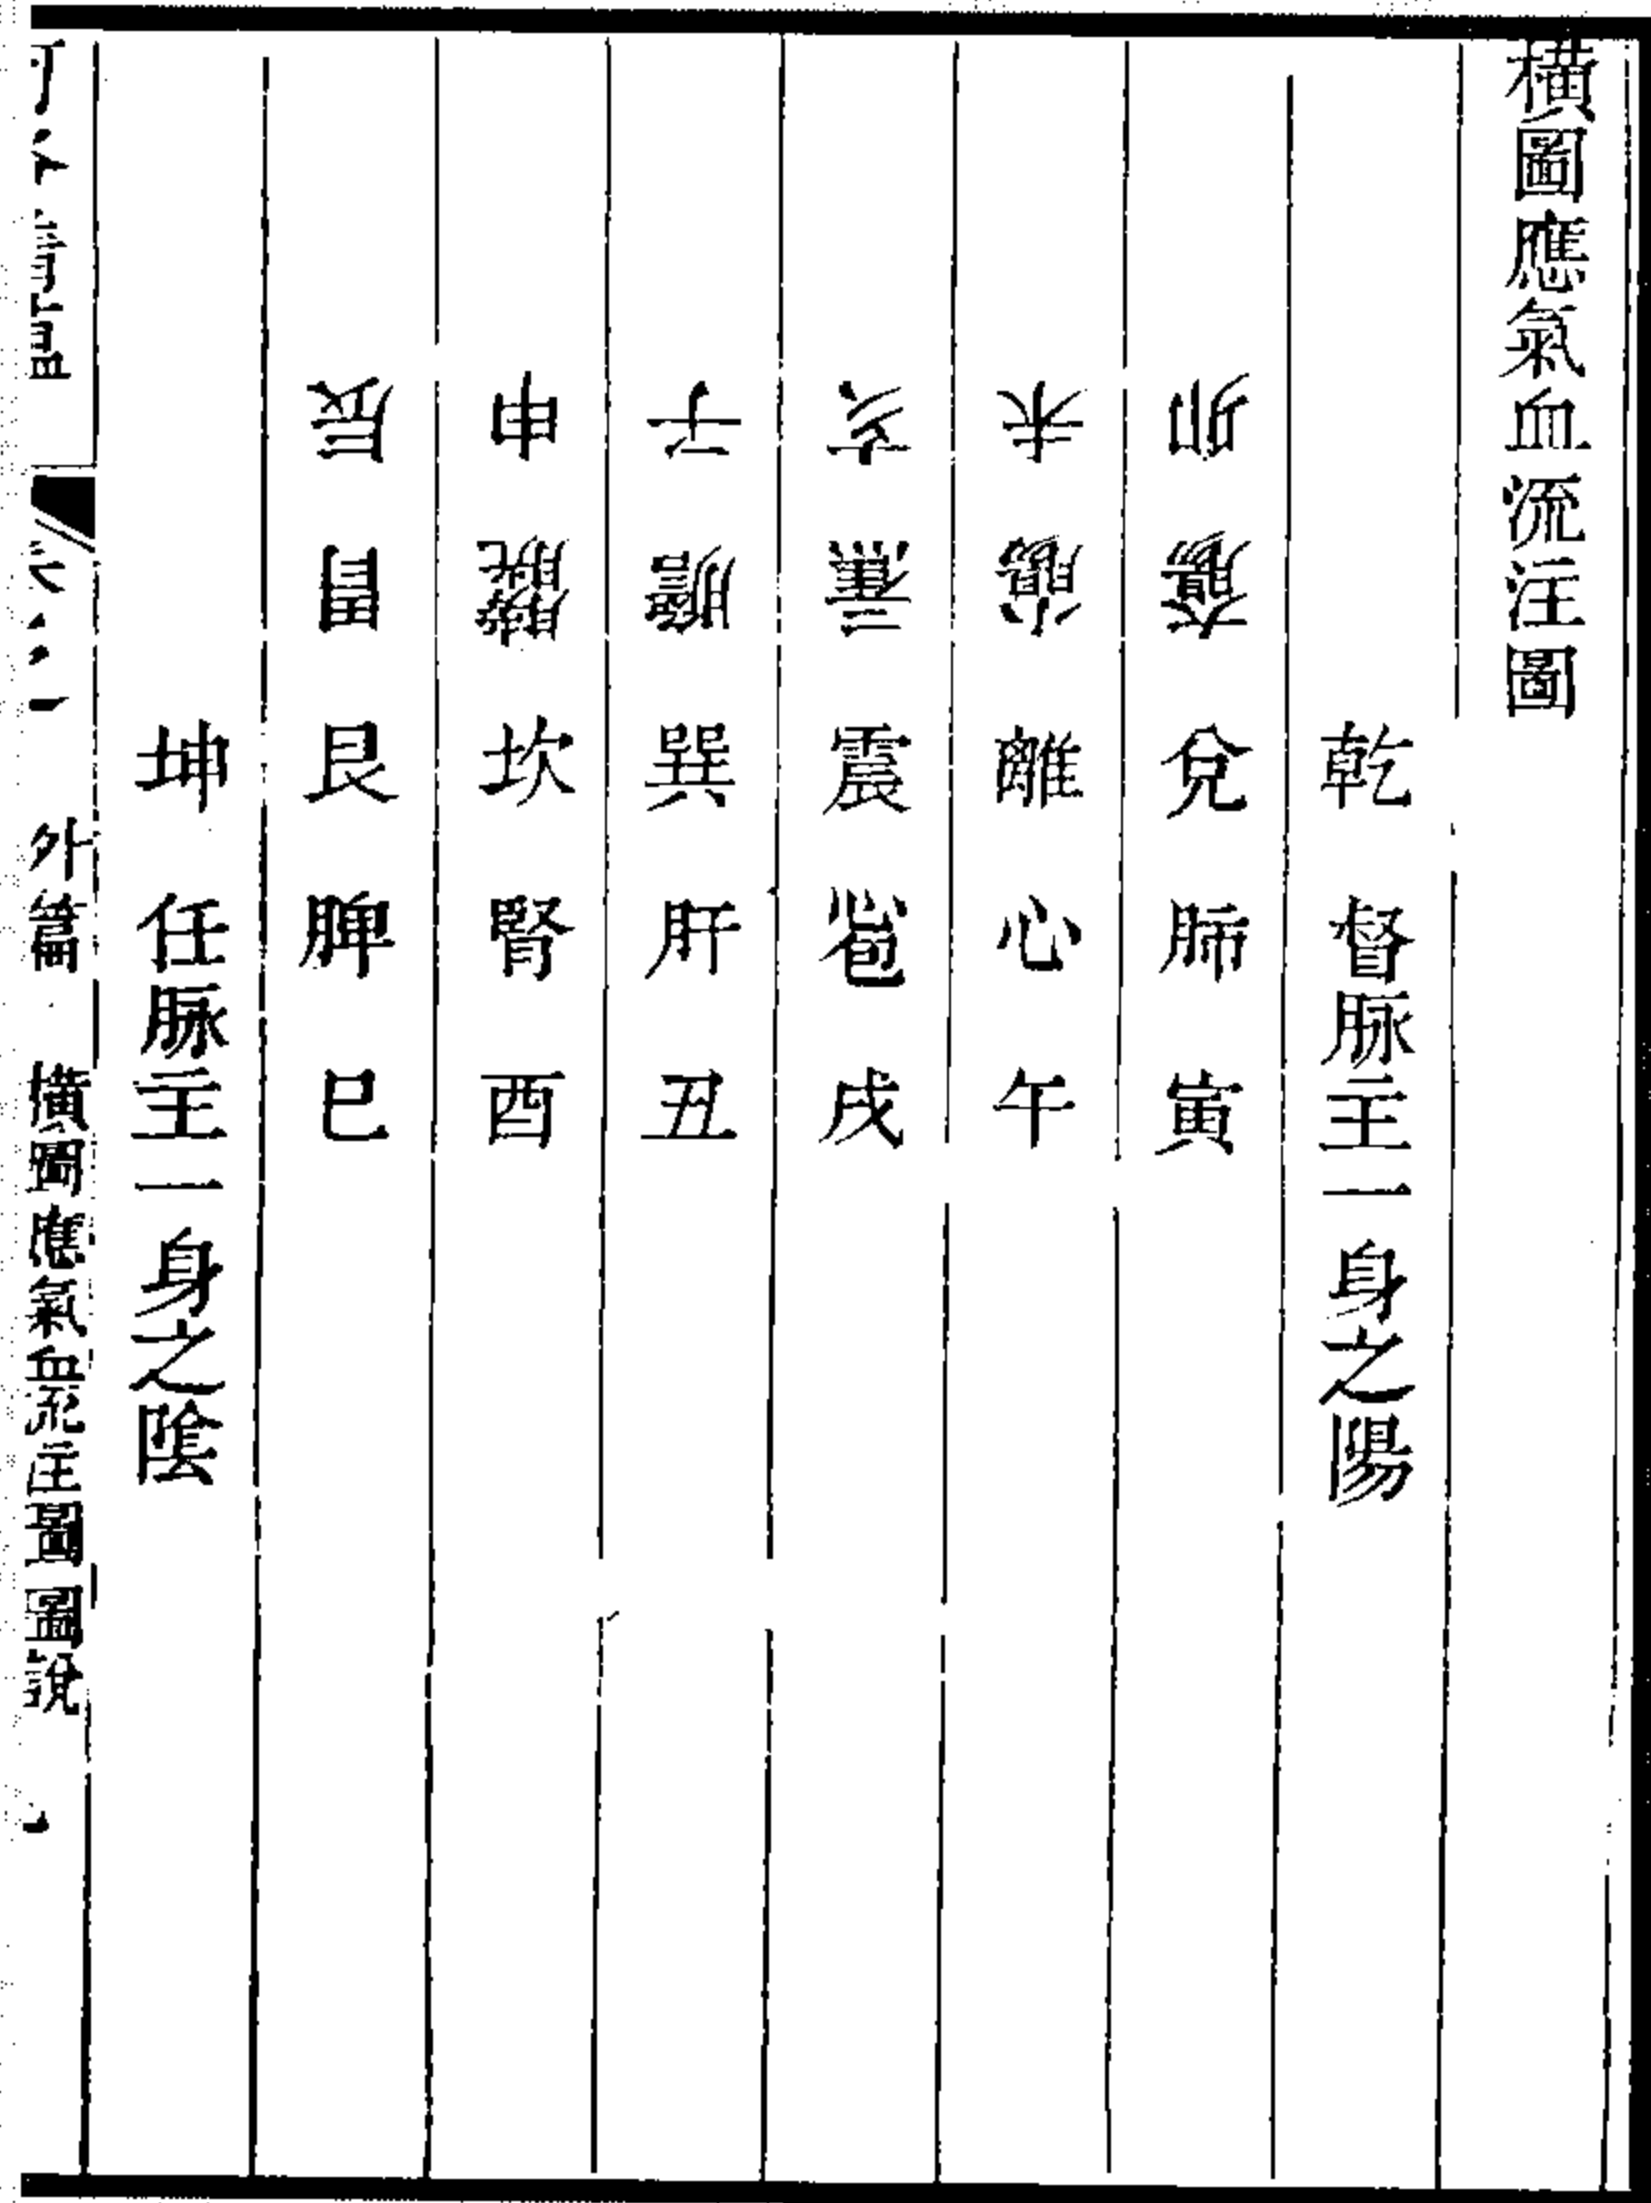 橫圖應氣血流注圖
乾 督脉主一身之陽
卯 大腸 兌 肺 寅
未 小腸 離 心 午
亥 三焦 震 心包 戌
子 膽 巽 肝 丑
申 膀胱 坎 腎 酉
辰 胃 艮 脾 巳
坤 任脉主一身之陰
外篇 橫圖應氣血流注圖圖說